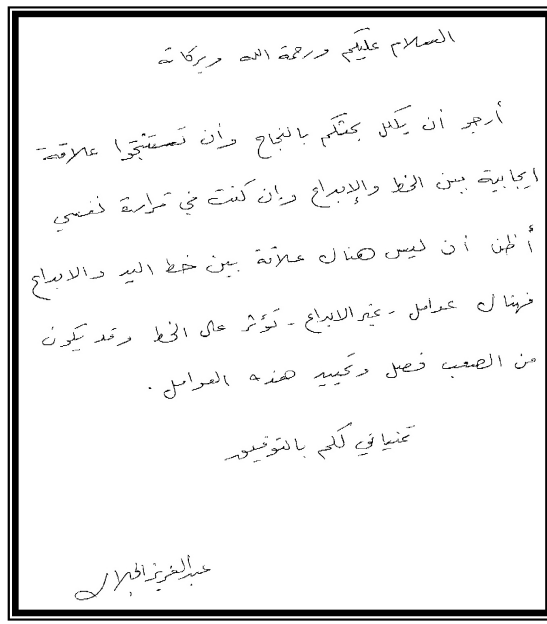 السلام عليكم ورحمة الله وبركاته
أرجو أن يكلل بحثكم بالنجاح وأن تستنتجوا علاقة
ايجابية بين الخط والإبداع وإن كنت في قرارة نفسي
أظن أن ليس هناك علاقة بين خط اليد والابداع
فهناك عوامل - غير الابداع - تؤثر على الخط وقد يكون
من الصعب فصل وتحييد هذه العوامل .
تمنياتي لكم بالتوفيق
عبدالعزيز الجلال